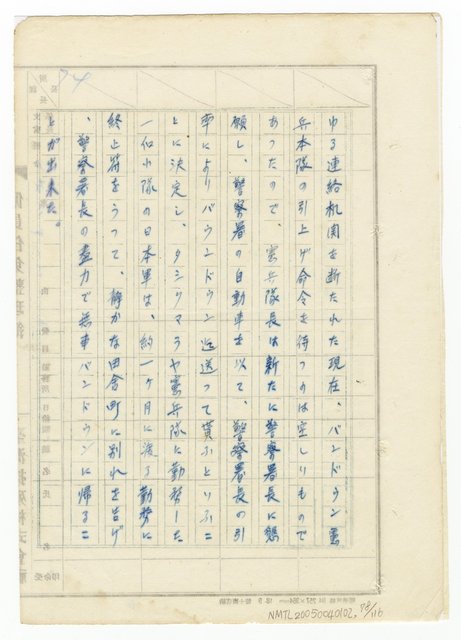 74
ゆる連絡機関を断たれた現在、バンドウン憲
兵本隊の引上げ命令を待つのは空しいもので
あったので、憲兵隊長は新たに警察署長に懇
願し、警察署の自動車を以て、警察署長の引
率によりバウンドウン迄送って貰ふといふこ
とに決定し、タシクマラヤ憲兵隊に勤務した
一個小隊の日本軍は、約一ヶ月に渡る勤務に
終止符をうって、静かな田舎町に別れを告げ
、警察署長の盡力で無事バンドウンに帰るこ
とが出来た。
NMTL20050040102, 78/116